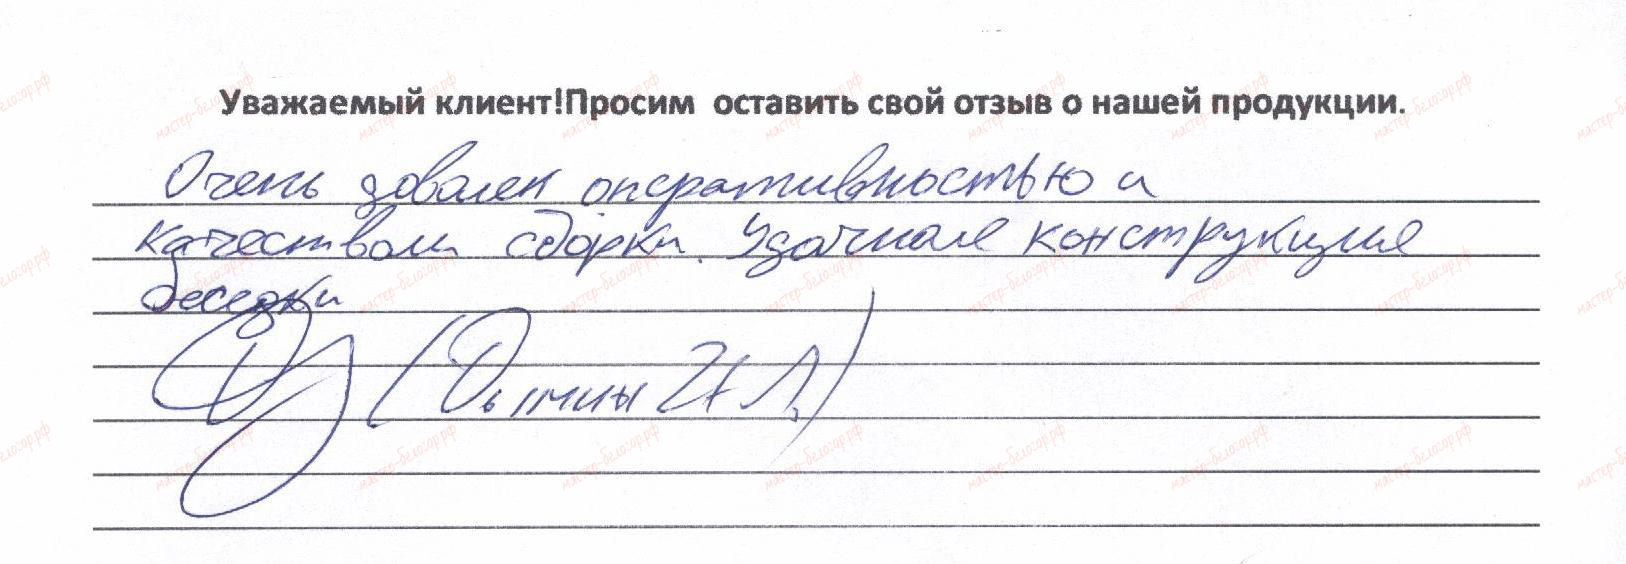 Уважаемый клиент!Просим оставить свой отзыв о нашей продукции.
Очень доволен оперативностью и
качеством сборки. Удачная конструкция
беседки
мастер-белозор.рф